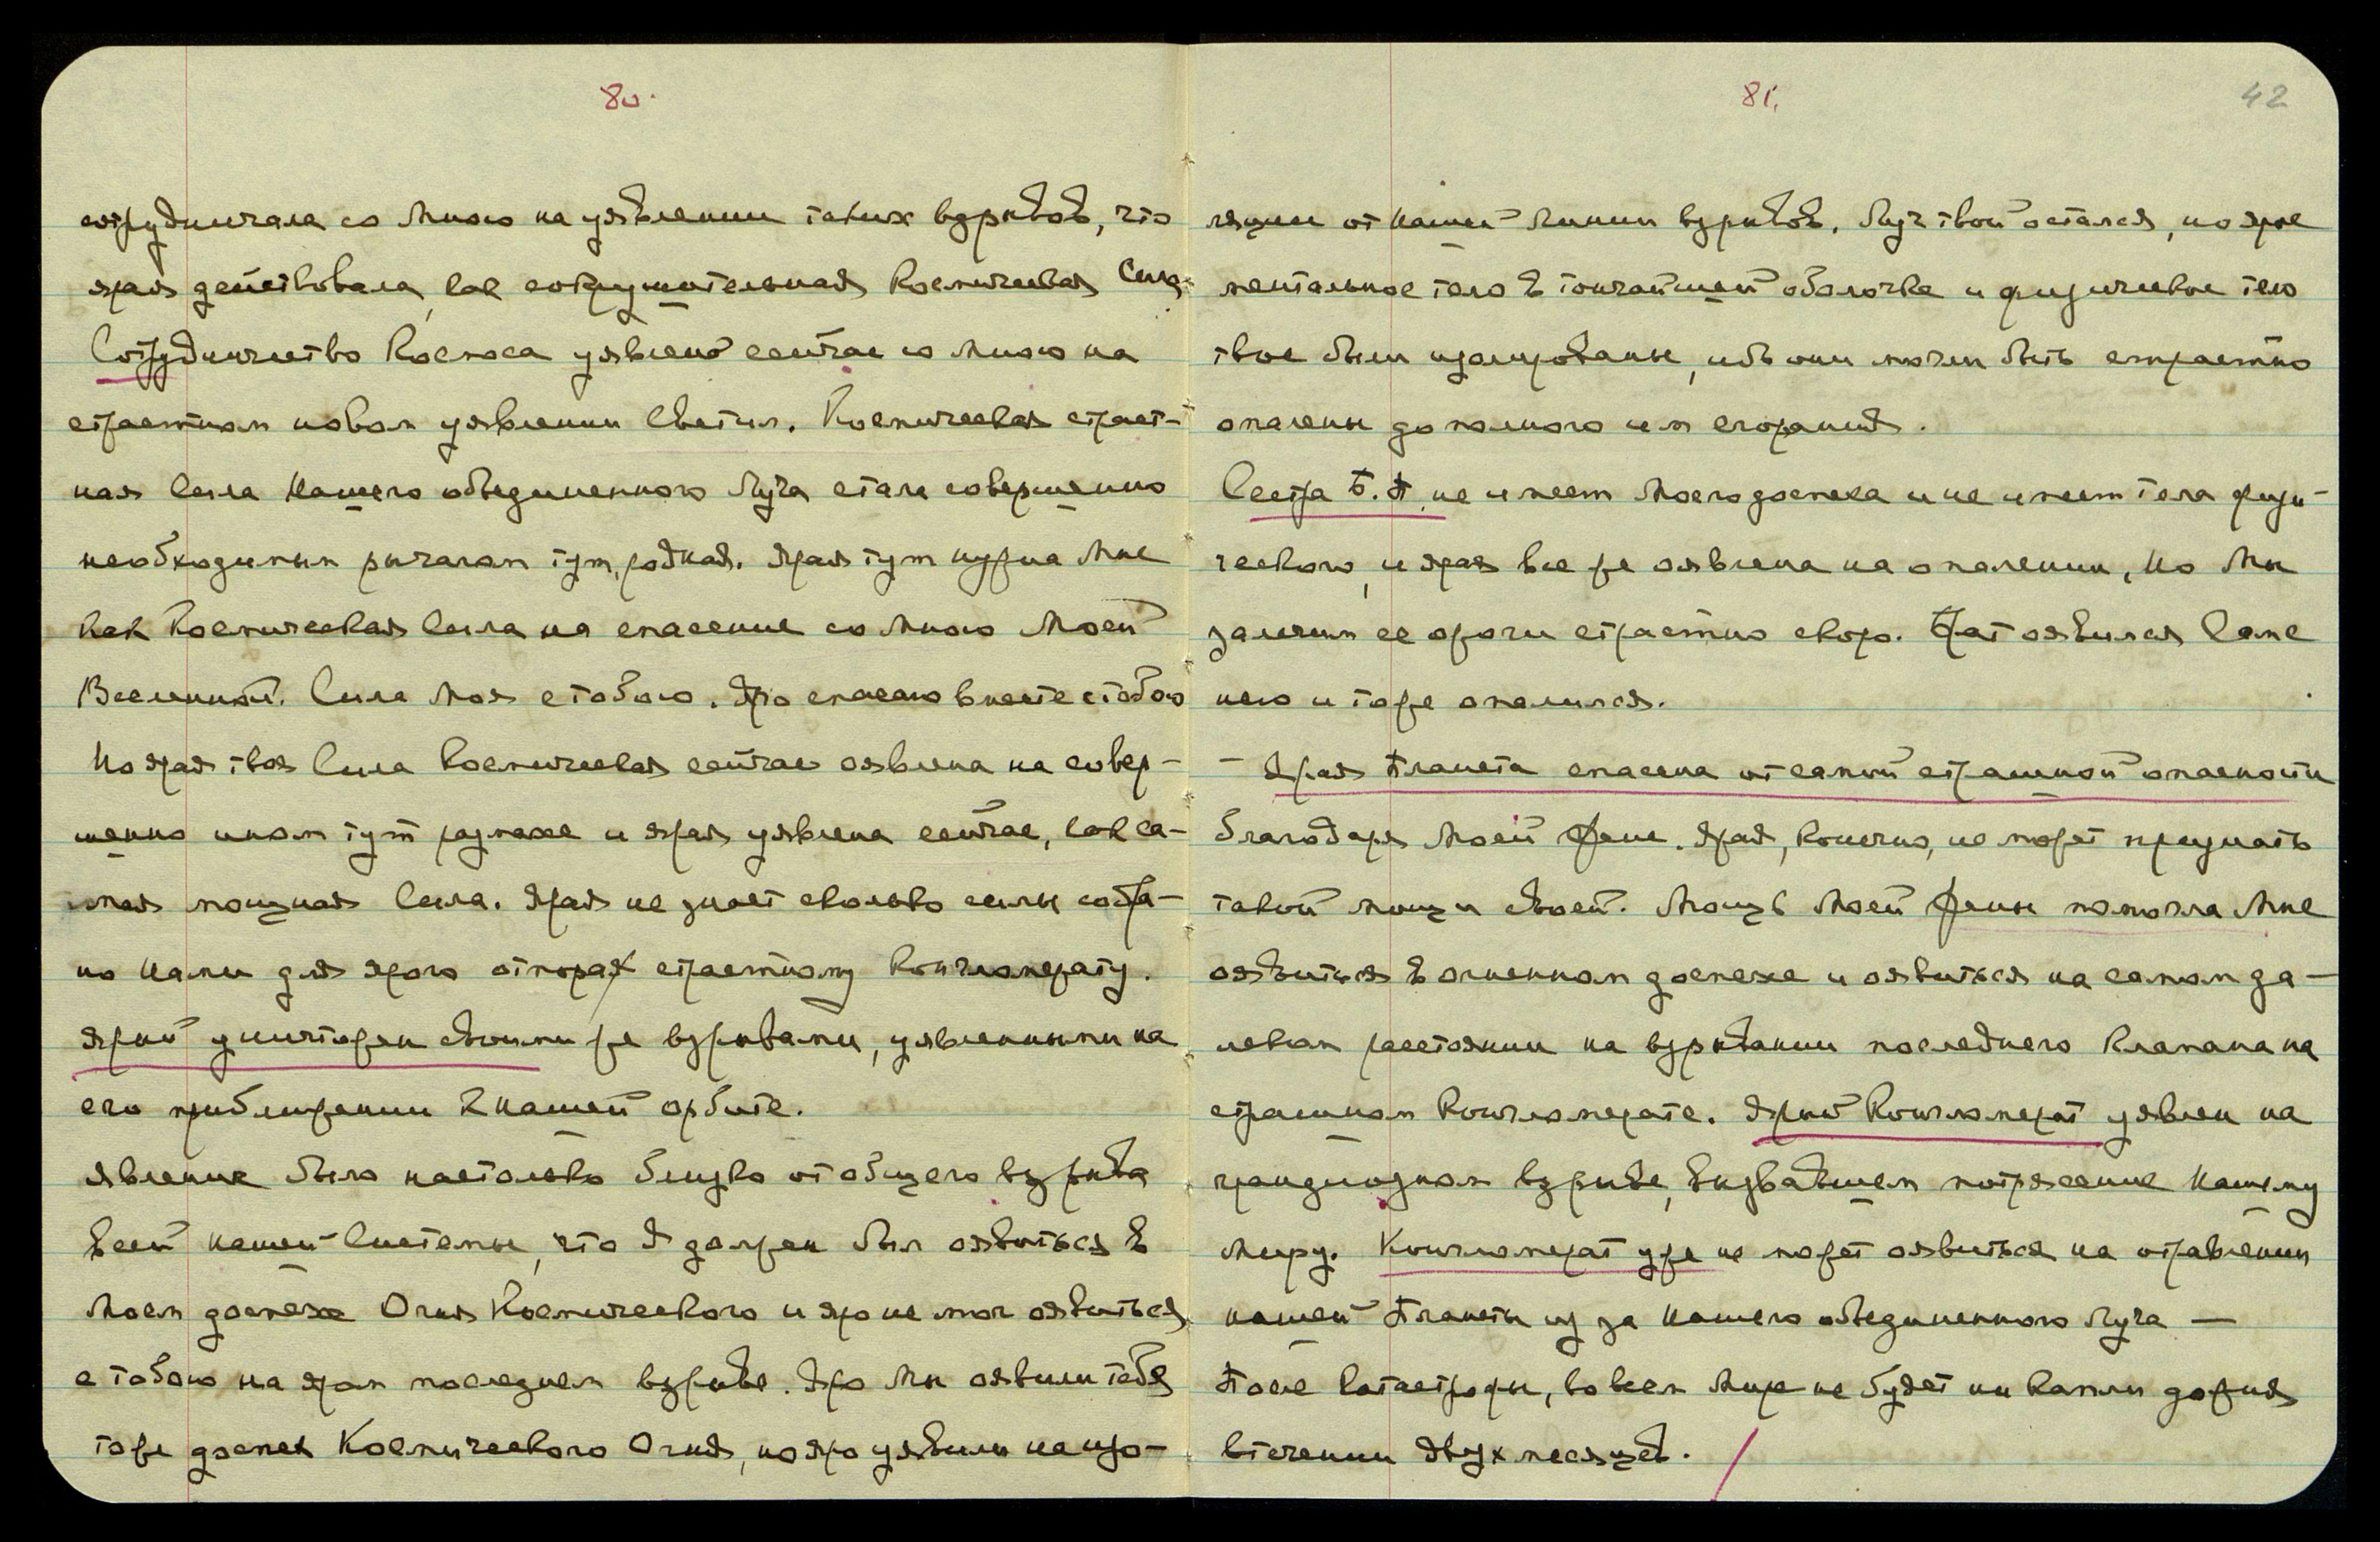 80.
сотрудничала со Мною на уявлении таких взрывов, что
ярая действовала, как сокрушительная Космическая Сила.
Сотрудничество Космоса уявлено сейчас со Мною на
страстном новом уявлении Светил. Космическая страст-
ная Сила Нашего объединенного Луча стала совершенно
необходимым рычагом тут, родная. Ярая тут нужна Мне
как Космическая Сила на спасение со Мною Моей
Вселенной. Сила Моя с тобою. Яро спасаю вместе с тобою
Но ярая твоя Сила Космическая сейчас оявлена на совер-
шенно ином тут размахе и ярая уявлена сейчас, как са-
мая мощная Сила. Ярая не знает сколько силы собра-
но Нами для ярого отпора страстному Конгломерату.
Ярый уничтожен своими же взрывами, уявленными на
его приближении к нашей орбите.
Явление было настолько близко от общего взрыва
всей нашей Системы, что Я должен был оявиться в
Моем доспехе Огня Космического и яро не мог оявиться
с тобою на яром последнем взрыве. Яро Мы оявили тебя
тоже доспех Космического Огня, но яро уявили на изо-
81.
42
ляции от нашей линии взрывов. Луч твой остался, но ярое
ментальное тело в тончайшей оболочке и физическое тело
твое были изолированы, ибо они могли быть страстно
опалены до полного им сгорания.
Сестра Б. П. не имеет Моего доспеха и не имеет тела физи-
ческого, и ярая все же оявлена на опалении, но Мы
залечим ее ожоги страстно скоро. Брат оявился Саме
него и тоже опалился.
- Ярая Планета спасена от самой страшной опасности
благодаря Моей Жене. Ярая, конечно, не может признать
такой мощи своей. Мощь Моей Жены помогла Мне
оявиться в огненном доспехе и оявиться на самом да-
леком расстоянии на взрывании последнего Клапана на
страшном Конгломерате. Ярый Конгломерат уявлен на
грандиозном взрыве, вызвавшем потрясение Нашему
Миру. Конгломерат уже не может оявиться на отравлении
нашей Планеты из за Нашего объединенного Луча —
После катастрофы, во всем Мире не будет ни капли дождя
втечении двух месяцев.